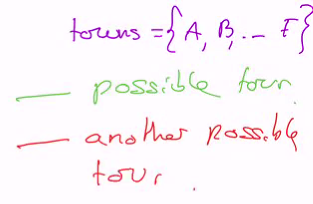 towns = {A, B, .. F}
— possible tour
— another possible
tour.